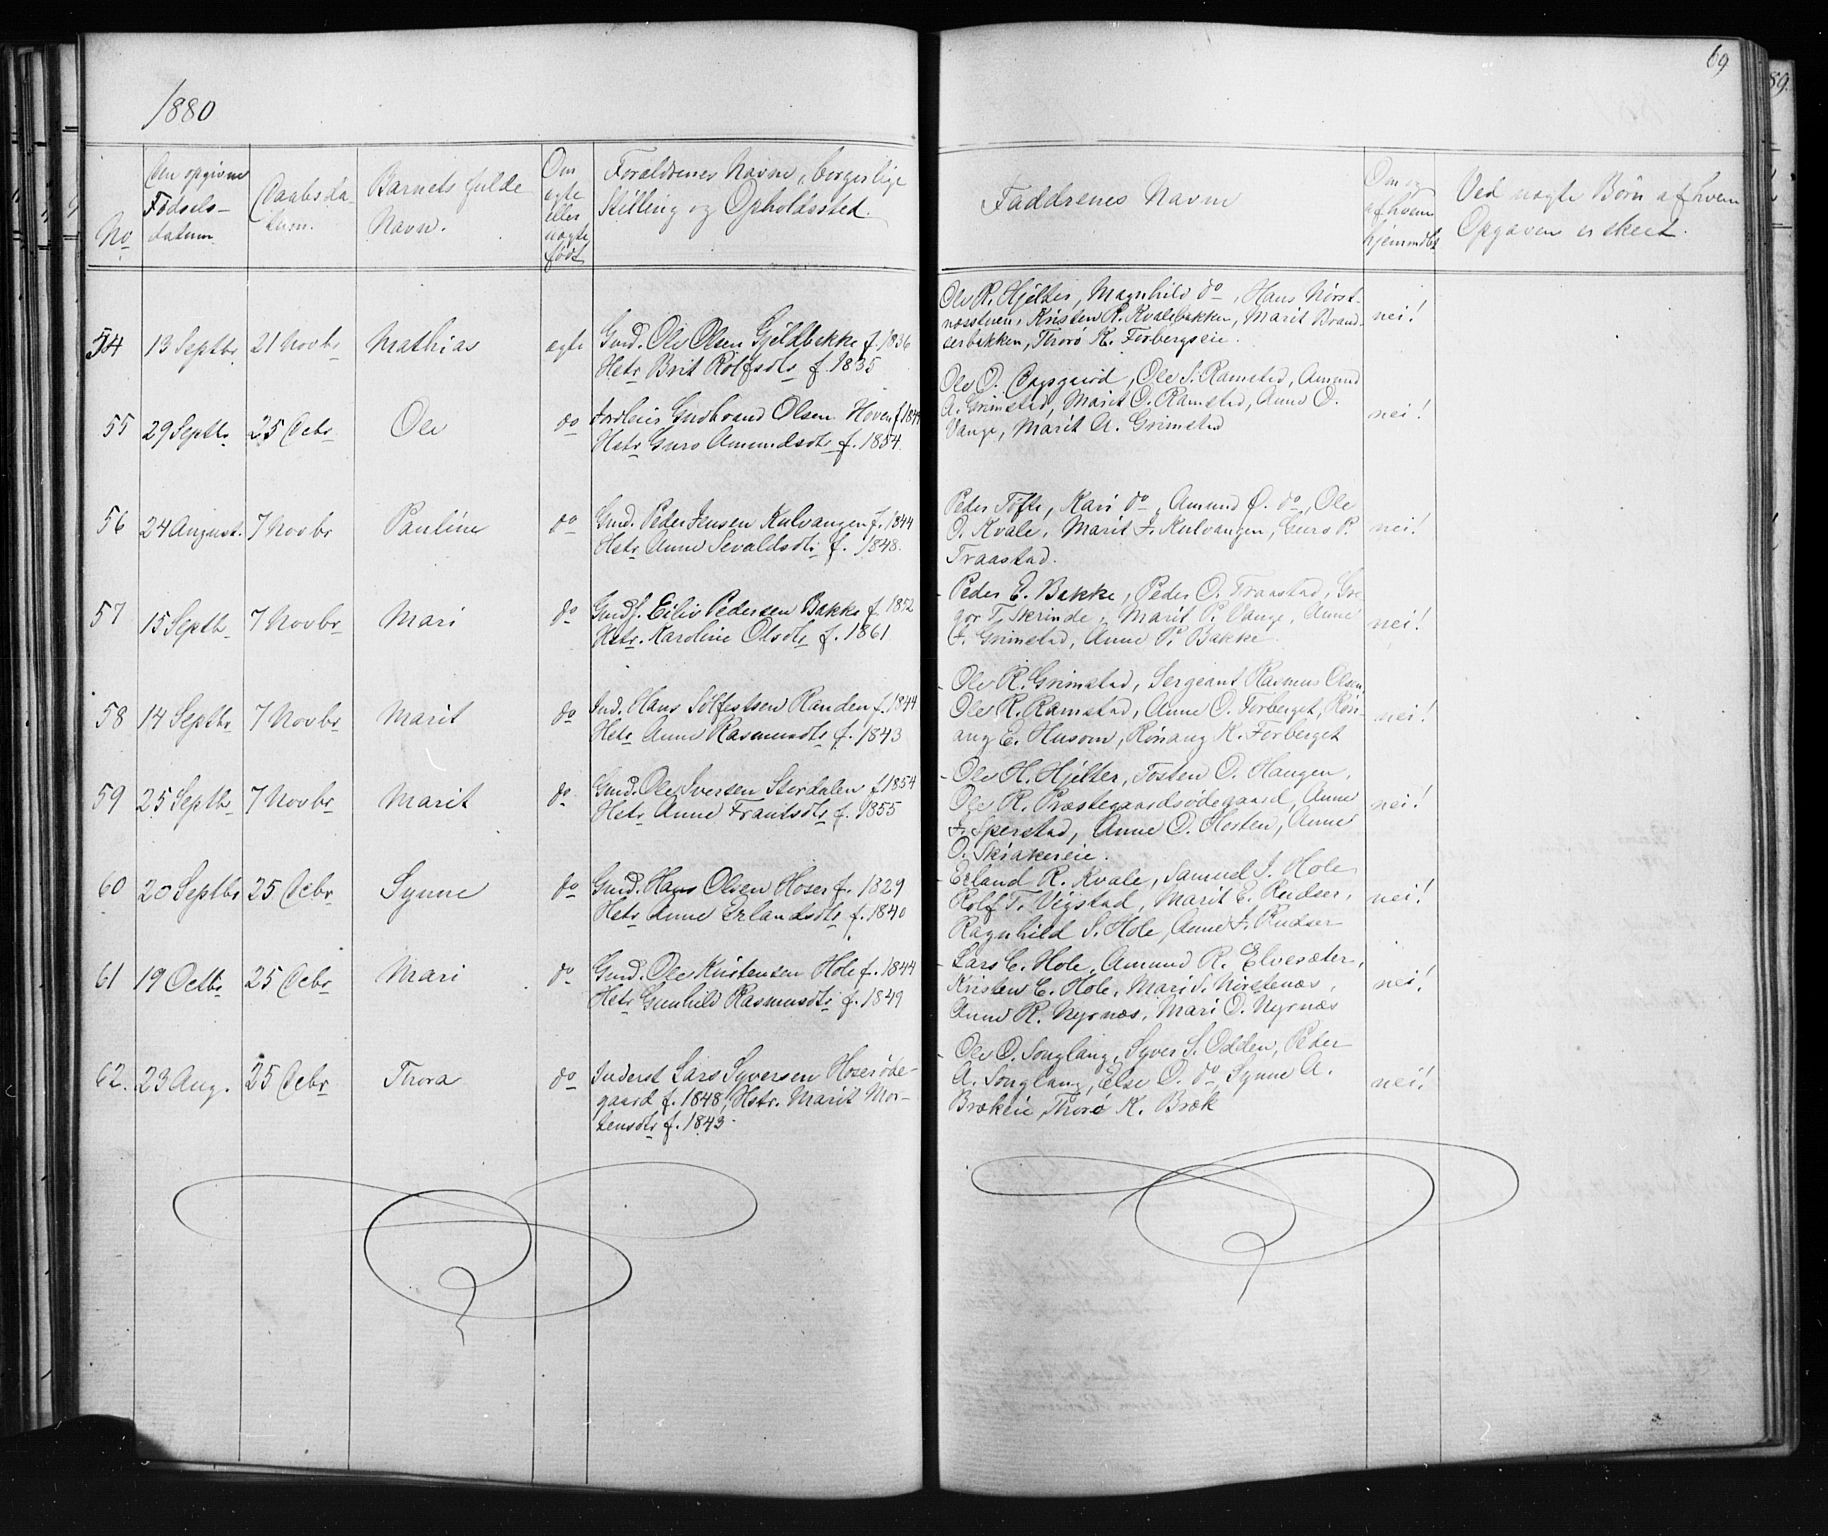 69
89.
1880
No
Den opgivne
Fødsels-
datum
Daabsda-
tum.
Barnets fulde
Navn.
Om
ægte
eller
uægte
født
Forældrenes Navn, borgerlige
Stilling og Opholdssted.
Faddrenes Navn
Om og
af hvem
hjemmedøbt
Ved uægte Børn af hvem
Opgaven er skeet.
54 13 Septbr 21 Novbr Mathias ægte
Gmd. Ole Olsen Gjeldbakke f. 1836
Hstr Brit Rolfsdtr f. 1835
Ole R. Hjelter, Magnhild do, Hans Nørst-
næsstuen, Kristen R. Kvalebakken, Marit Brand-
serbakken, Thorø K. Forbergseie.
nei!
55 29 Septbr 25 Decbr Ole do
Gudbrand Olsen Hoven f. 1849
Hstr Guro Amundsdtr f. 1854.
Ole O. Dagsgard, Ole S. Ramstad, Amund
A. Grimstad, Marit O. Ramstad, Anne O.
Vange, Marit A. Grimstad
nei!
56 24 August. 7 Novbr Pauline do
Gmd. Peder Jensen Kulvangen f. 1844
Hstr Anne Sevaldsdtr f. 1848.
Peder Tofte, Kari do, Amund Ø. do, Ole
O. Kvale, Marit J. Kulvangen, Guro P.
Traastad.
nei!
57 15 Septb. 7 Novbr Mari do
Gmd. Eiliv Pedersen Bakke f. 1852
Hstr. Karoline Olsdtr f. 1861
Peder E. Bakke, Peder O. Traastad, Gre-
gor T. Skrinde, Marit P. Vange, Anne
J. Grimstad, Anne P. Bakke.
nei!
58 14 Septbr 7 Novbr Marit do
Ind. Hans Sølfestsen Randen f. 1844
Hstr Anne Rasmusdtr f. 1843
Ole R. Grimstad, Sergeant Rasmus Olsen,
Ole R. Ramstad, Anne O. Forberget, Røn-
aug E. Husom, Rønaug K. Forberget
nei!
59 25 Septbr 7 Novbr Marit do
Gmd. Ole Iversen Stordalen f 1854
Hstr Anne Frantsdtr f. 1855
Ole H. Hjelter, Tosten O. Haugen,
Ole R. Præstegaardsødegaard, Anne
J. Sperstad, Anne O. Horten, Anne
O. Skiakereie.
nei!
60 20 Septbr 25 Decbr Synne do
Gmd. Hans Olsen Hoser f. 1829
Hstr Anne Erlandsdtr f. 1840
Erland R. Kvale, Samuel S. Hole
Rolf T. Vigstad, Marit E. Rudser,
Ragnhild S. Hole, Anne J. Rudser
nei!
61 19 Octbr 25 Decbr Mari do
Gmd. Ole Kristensen Hole f. 1844
Hstr Gunhild Rasmusdtr f. 1849
Lars E. Hole, Amund R. Elvesæter,
Kristen E. Hole, Mari S. Nørstenæs,
Anne R. Nyrnæs, Mari O. Nyrnæs
nei!
62. 23 Aug. 25 Decbr Thora do
Inderst Lars Syversen Hoserøde-
gaard f. 1848, Hstr. Marit Mor-
tensdtr f. 1843.
Ole O. Songlang, Syver S. Odden, Peder
A. Songlang, Else O. do, Synne A.
Brækeie, Thorø K. Bræk
nei!